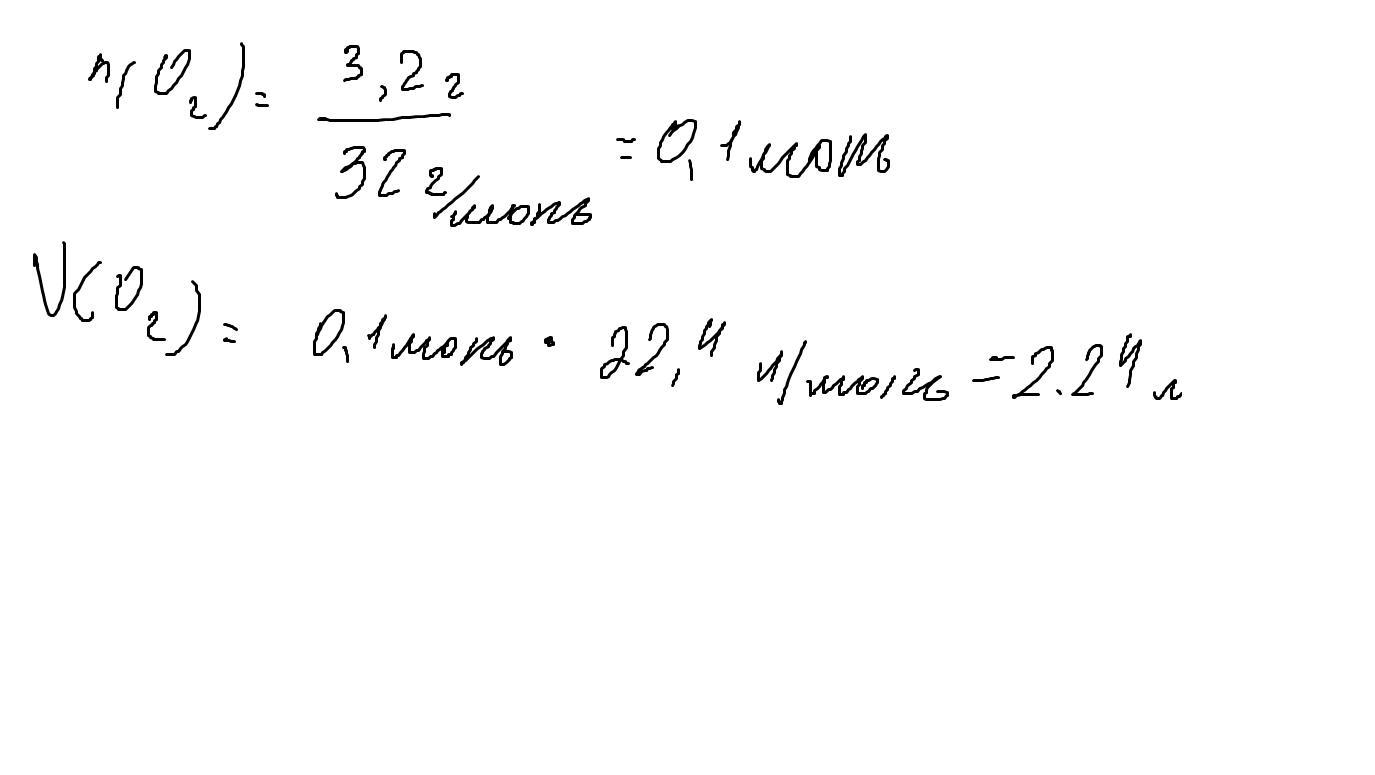 n(O₂) = 3,2 г / 32 г/моль = 0,1 моль
V(O₂) = 0,1 моль · 22,4 л/моль = 2.24 л